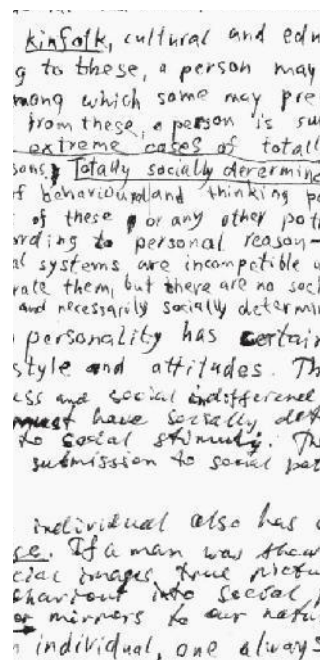 kinfolk, cultural and edu
g to these, a person may
mong which some may pre
from these, a person is su
extreme cases of totall
sons. Totally socially determine
of behaviour and thinking pa
of these or any other pat
ording to personal reason-
al systems are incompetible
rate them, but there are no soc
and necessarily socially determin
personality has certain
style and attitudes. Th
ess and social indifference
must have socially det
to social stimuly. Th
submission to social pat
individual also has
se. If a man was
cial images true pictu
ehaviour into social
or mirrors to our natu
n individual, one always